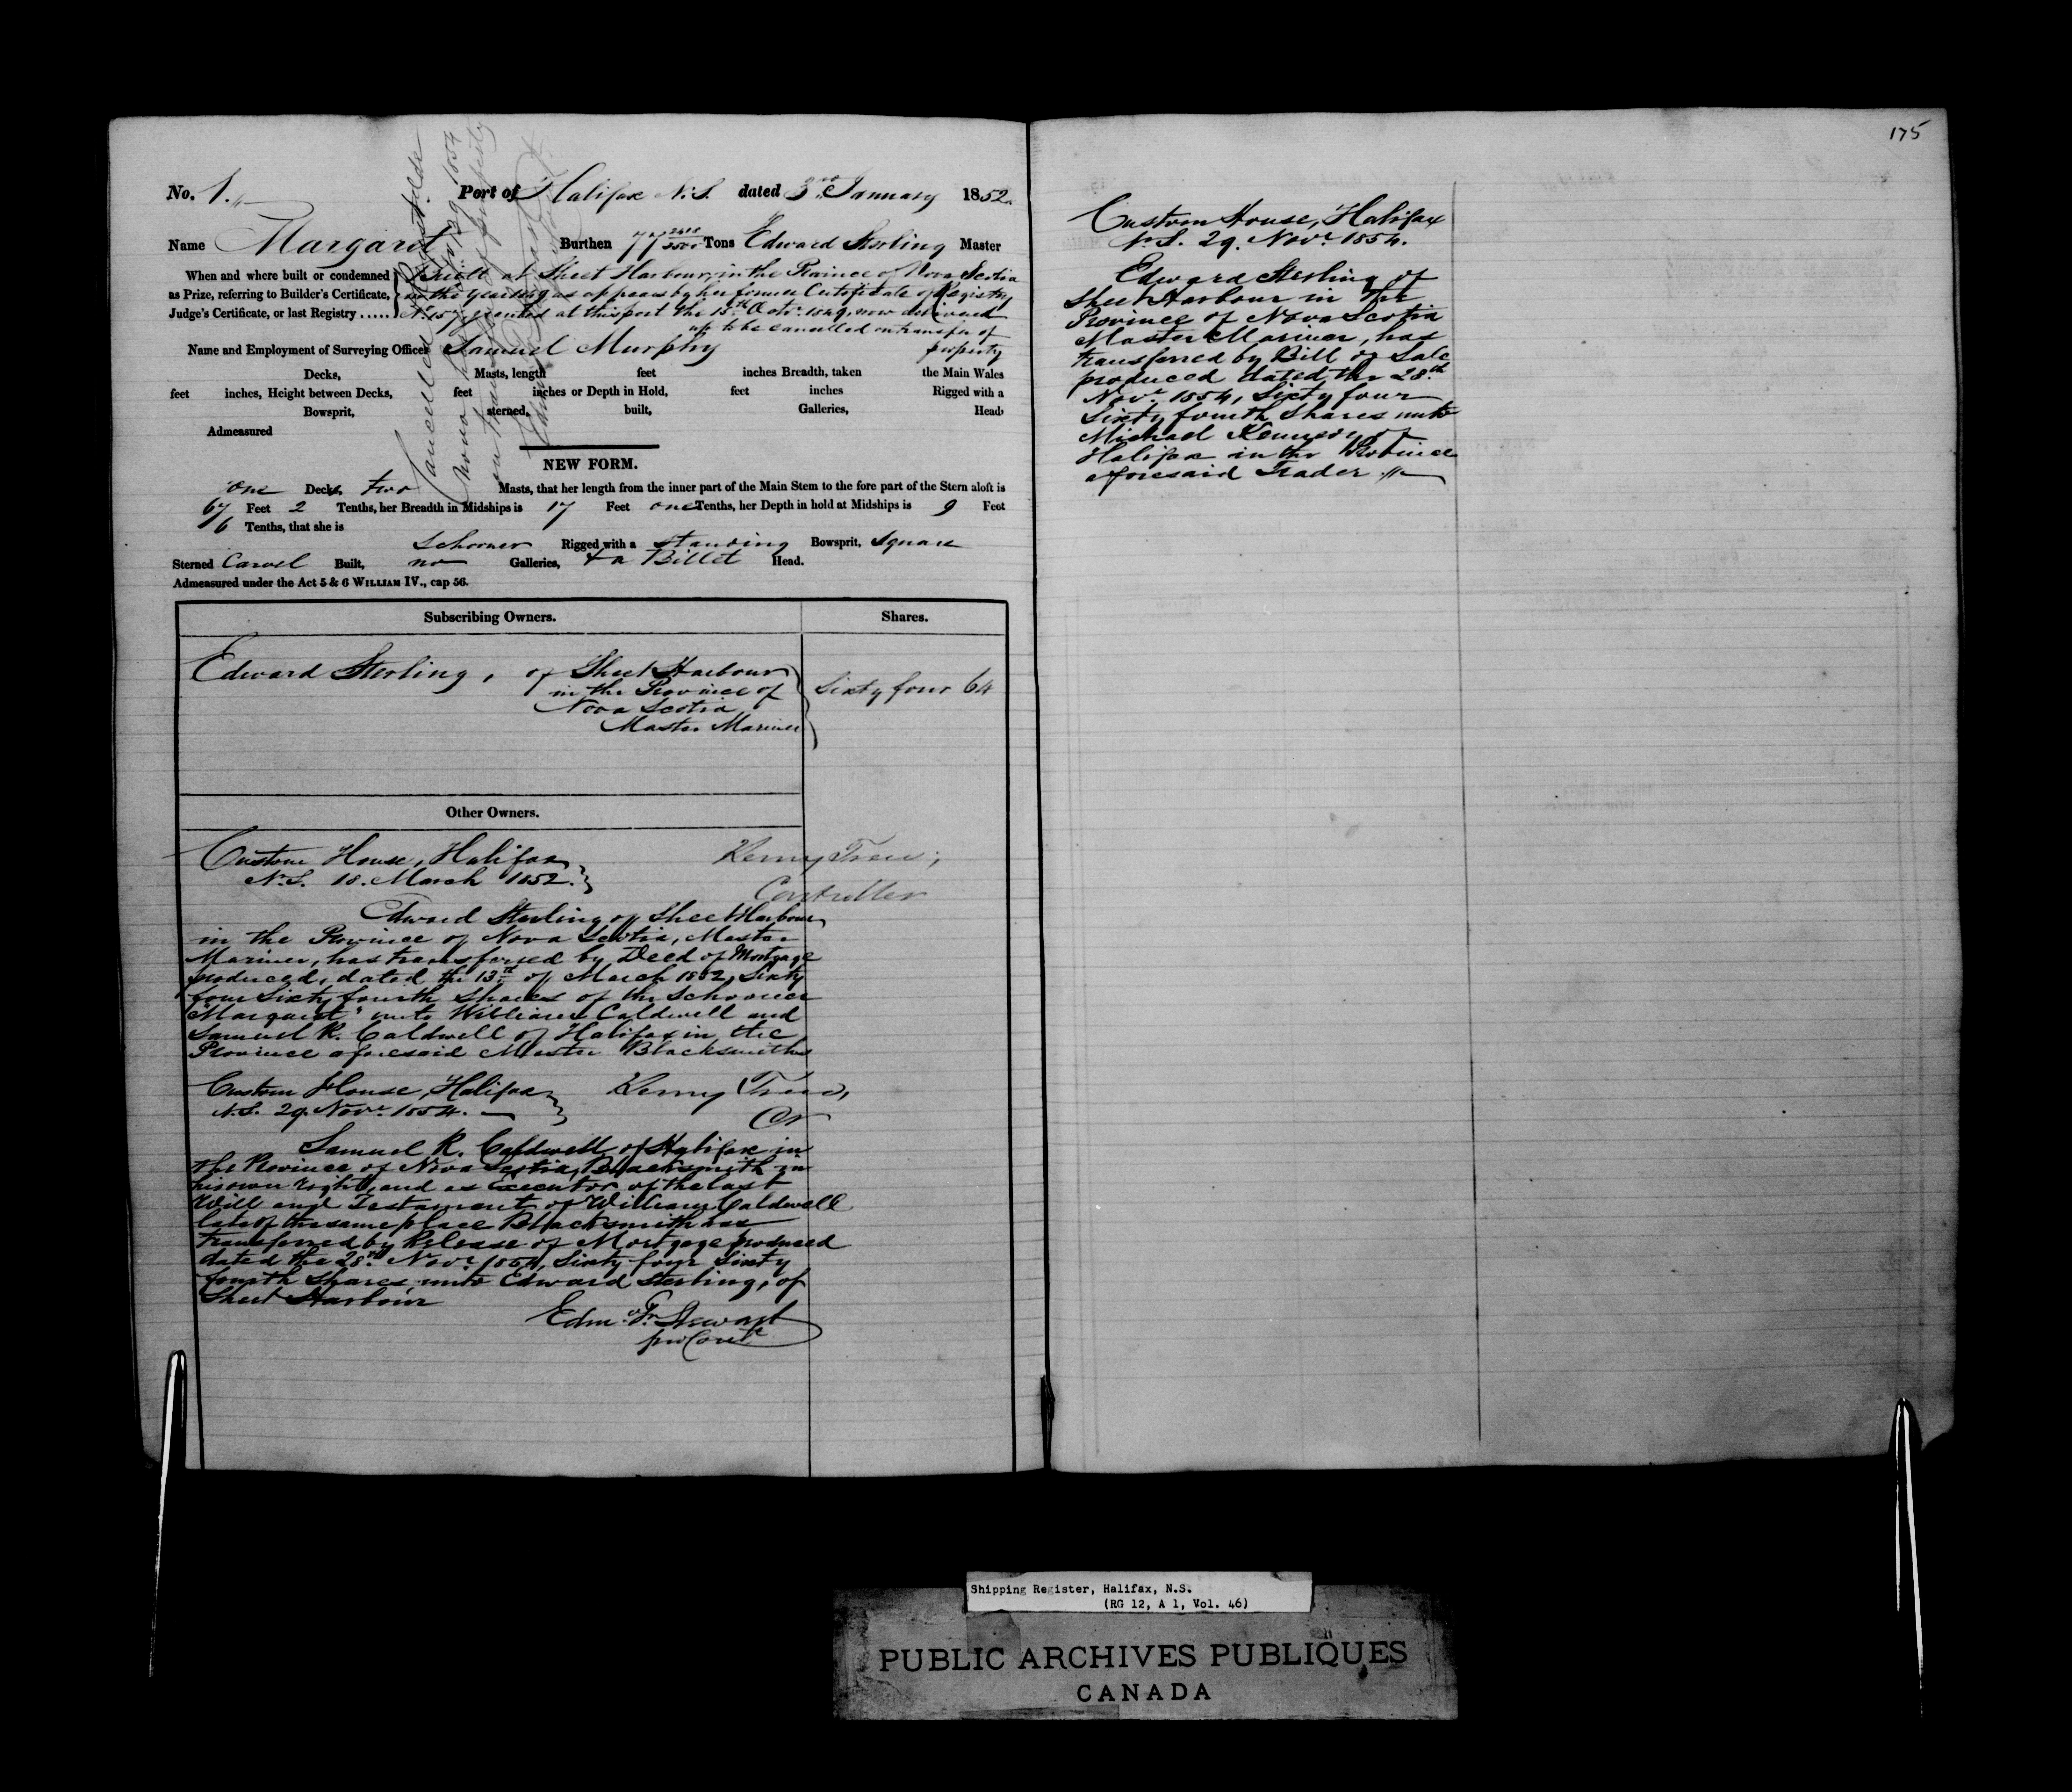 175
No. 1. Port of Halifax N.S. dated 3rd January 1852.
Name Margaret Burthen 77 Tons Edward Sterling Master
When and where built or condemned
as Prize, referring to Builder's Certificate,
Judge's Certificate, or last Registry .....
Built at Sheet Harbour, in the Province of Nova Scotia
in the year 1849 as appears by her former Certificate of Registry
No. 157 granted at this port the 15th Octr. 1849, now delivered
up to be cancelled on transfer of
property
Name and Employment of Surveying Officer Samuel Murphy
Decks, Masts, length feet inches Breadth, taken the Main Wales
feet inches, Height between Decks, feet inches or Depth in Hold, feet inches Rigged with a
Bowsprit, sterned, built, Galleries, Head,
Admeasured
Cancelled
on transfer of property
NEW FORM.
One Deck, two Masts, that her length from the inner part of the Main Stem to the fore part of the Stern aloft is
67 Feet 2 Tenths, her Breadth in Midships is 17 Feet one Tenths, her Depth in hold at Midships is 9 Feet
6 Tenths, that she is
Schooner Rigged with a standing Bowsprit, square
Sterned Carvel Built, no Galleries, & a Billet Head.
Admeasured under the Act 5 & 6 WILLIAM IV., cap 56.
Subscribing Owners. Shares.
Edward Sterling, of Sheet Harbour
in the Province of
Nova Scotia
Master Mariner
Sixty four 64
Other Owners.
Custom House, Halifax
N.S. 18. March 1852.
Controller
Edward Sterling of Sheet Harbour
in the Province of Nova Scotia, Master
Mariner, has transferred by Deed of Mortgage
produced, dated the 13th of March 1852, Sixty
four Sixty fourth shares of the Schooner
"Margaret" unto William Caldwell and
Samuel R. Caldwell of Halifax in the
Province aforesaid Master Blacksmiths
Custom House, Halifax
N.S. 29. Novr. 1854.
Samuel R. Caldwell of Halifax in
the Province of Nova Scotia, Blacksmith in
his own right, and as Executor of the last
Will and Testament of William Caldwell
late of the same place Blacksmith has
transferred by Release of Mortgage produced
dated the 28th Novr. 1854, Sixty four Sixty
fourth shares unto Edward Sterling, of
Sheet Harbour
Edm. Fr. Stewart
Custom House, Halifax
N.S. 29. Novr. 1854.
Edward Sterling of
Sheet Harbour in the
Province of Nova Scotia
Master Mariner, has
transferred by Bill of Sale
produced dated the 28th
Novr. 1854, Sixty four
Sixty fourth Shares unto
Michael Kennedy of
Halifax in the Province
aforesaid Trader
Shipping Register, Halifax, N.S.
(RG 12, A 1, Vol. 46)
PUBLIC ARCHIVES PUBLIQUES
CANADA